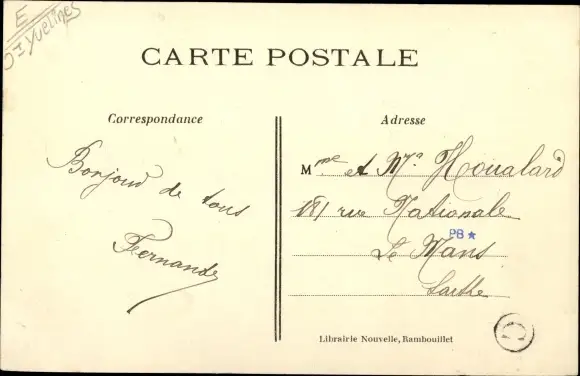 E
Yvelines
CARTE POSTALE
Correspondance
Adresse
Bonjour de tous
Fernande
Mme et Mr Houalard
181 rue Nationale
PB ★
Le Mans
Sarthe
Librairie Nouvelle, Rambouillet